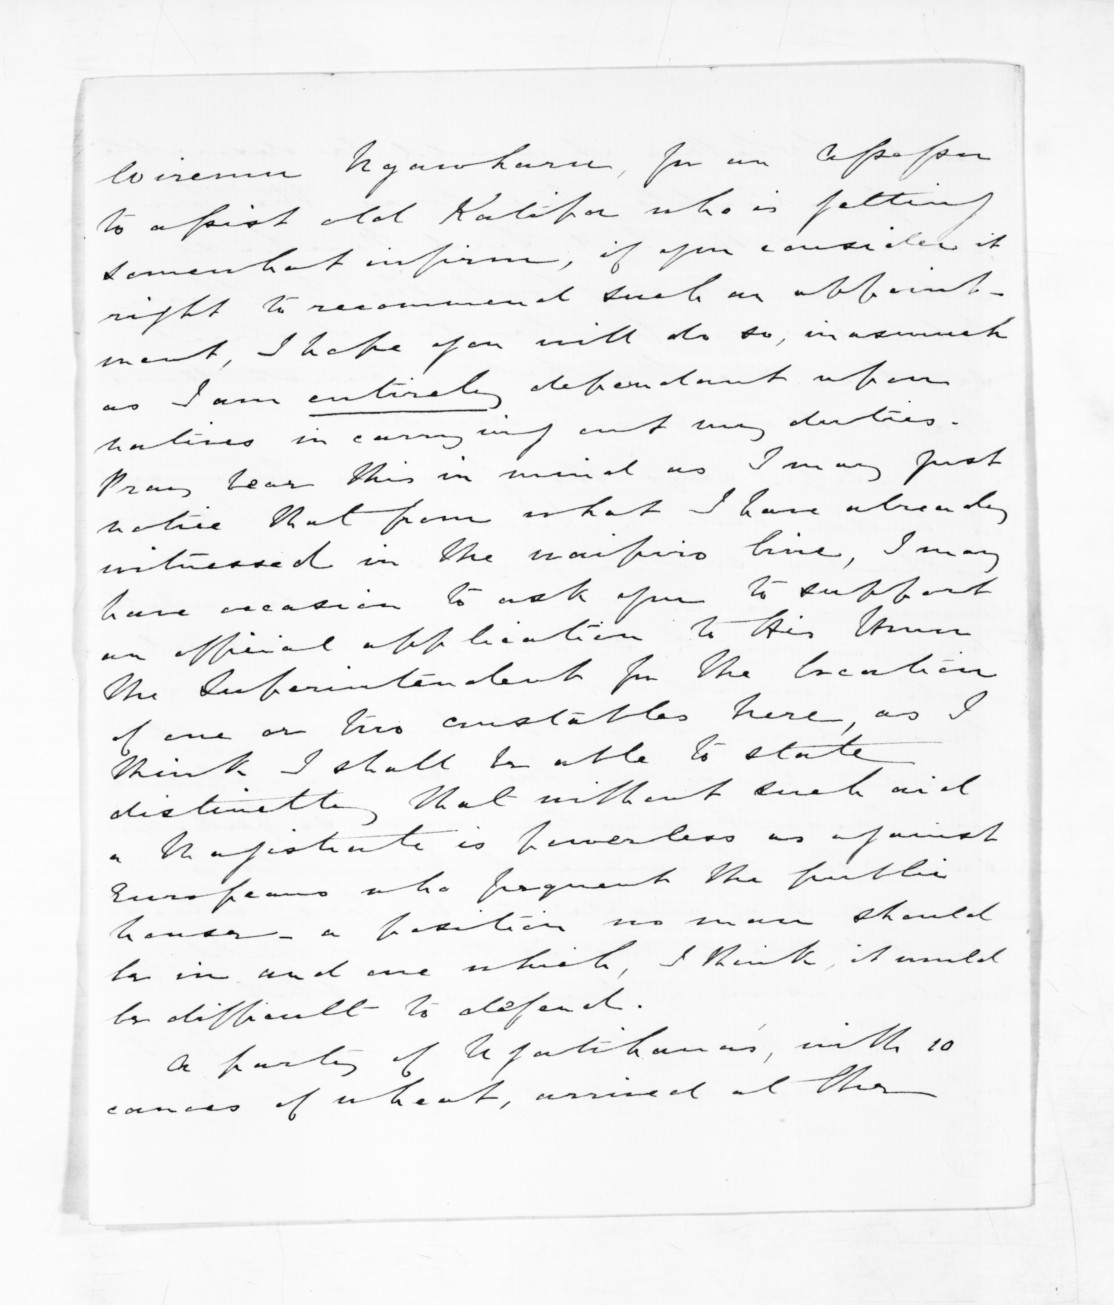 Wiremu Ngawharu, for an assessor
to assist old Katipa who is getting
somewhat infirm, if you consider it
right to recommend such an appoint-
ment, I hope you will do so, inasmuch
as I am entirely dependant upon
natives in carrying out my duties.
Pray bear this in mind as I may just
notice that from what I have already
witnessed in the waipiro line, I may
have occasion to ask you to support
an official application to His Honor
the Superintendent for the location
of one or two constables here, as I
think I shall be able to state
distinctly that without such aid
a Magistrate is powerless as against
Europeans who frequent the public
house - a position no man should
be in and one which, I think, it would
be difficult to defend.
A party of Ngatihaua's, with 10
canoes of wheat, arrived at the